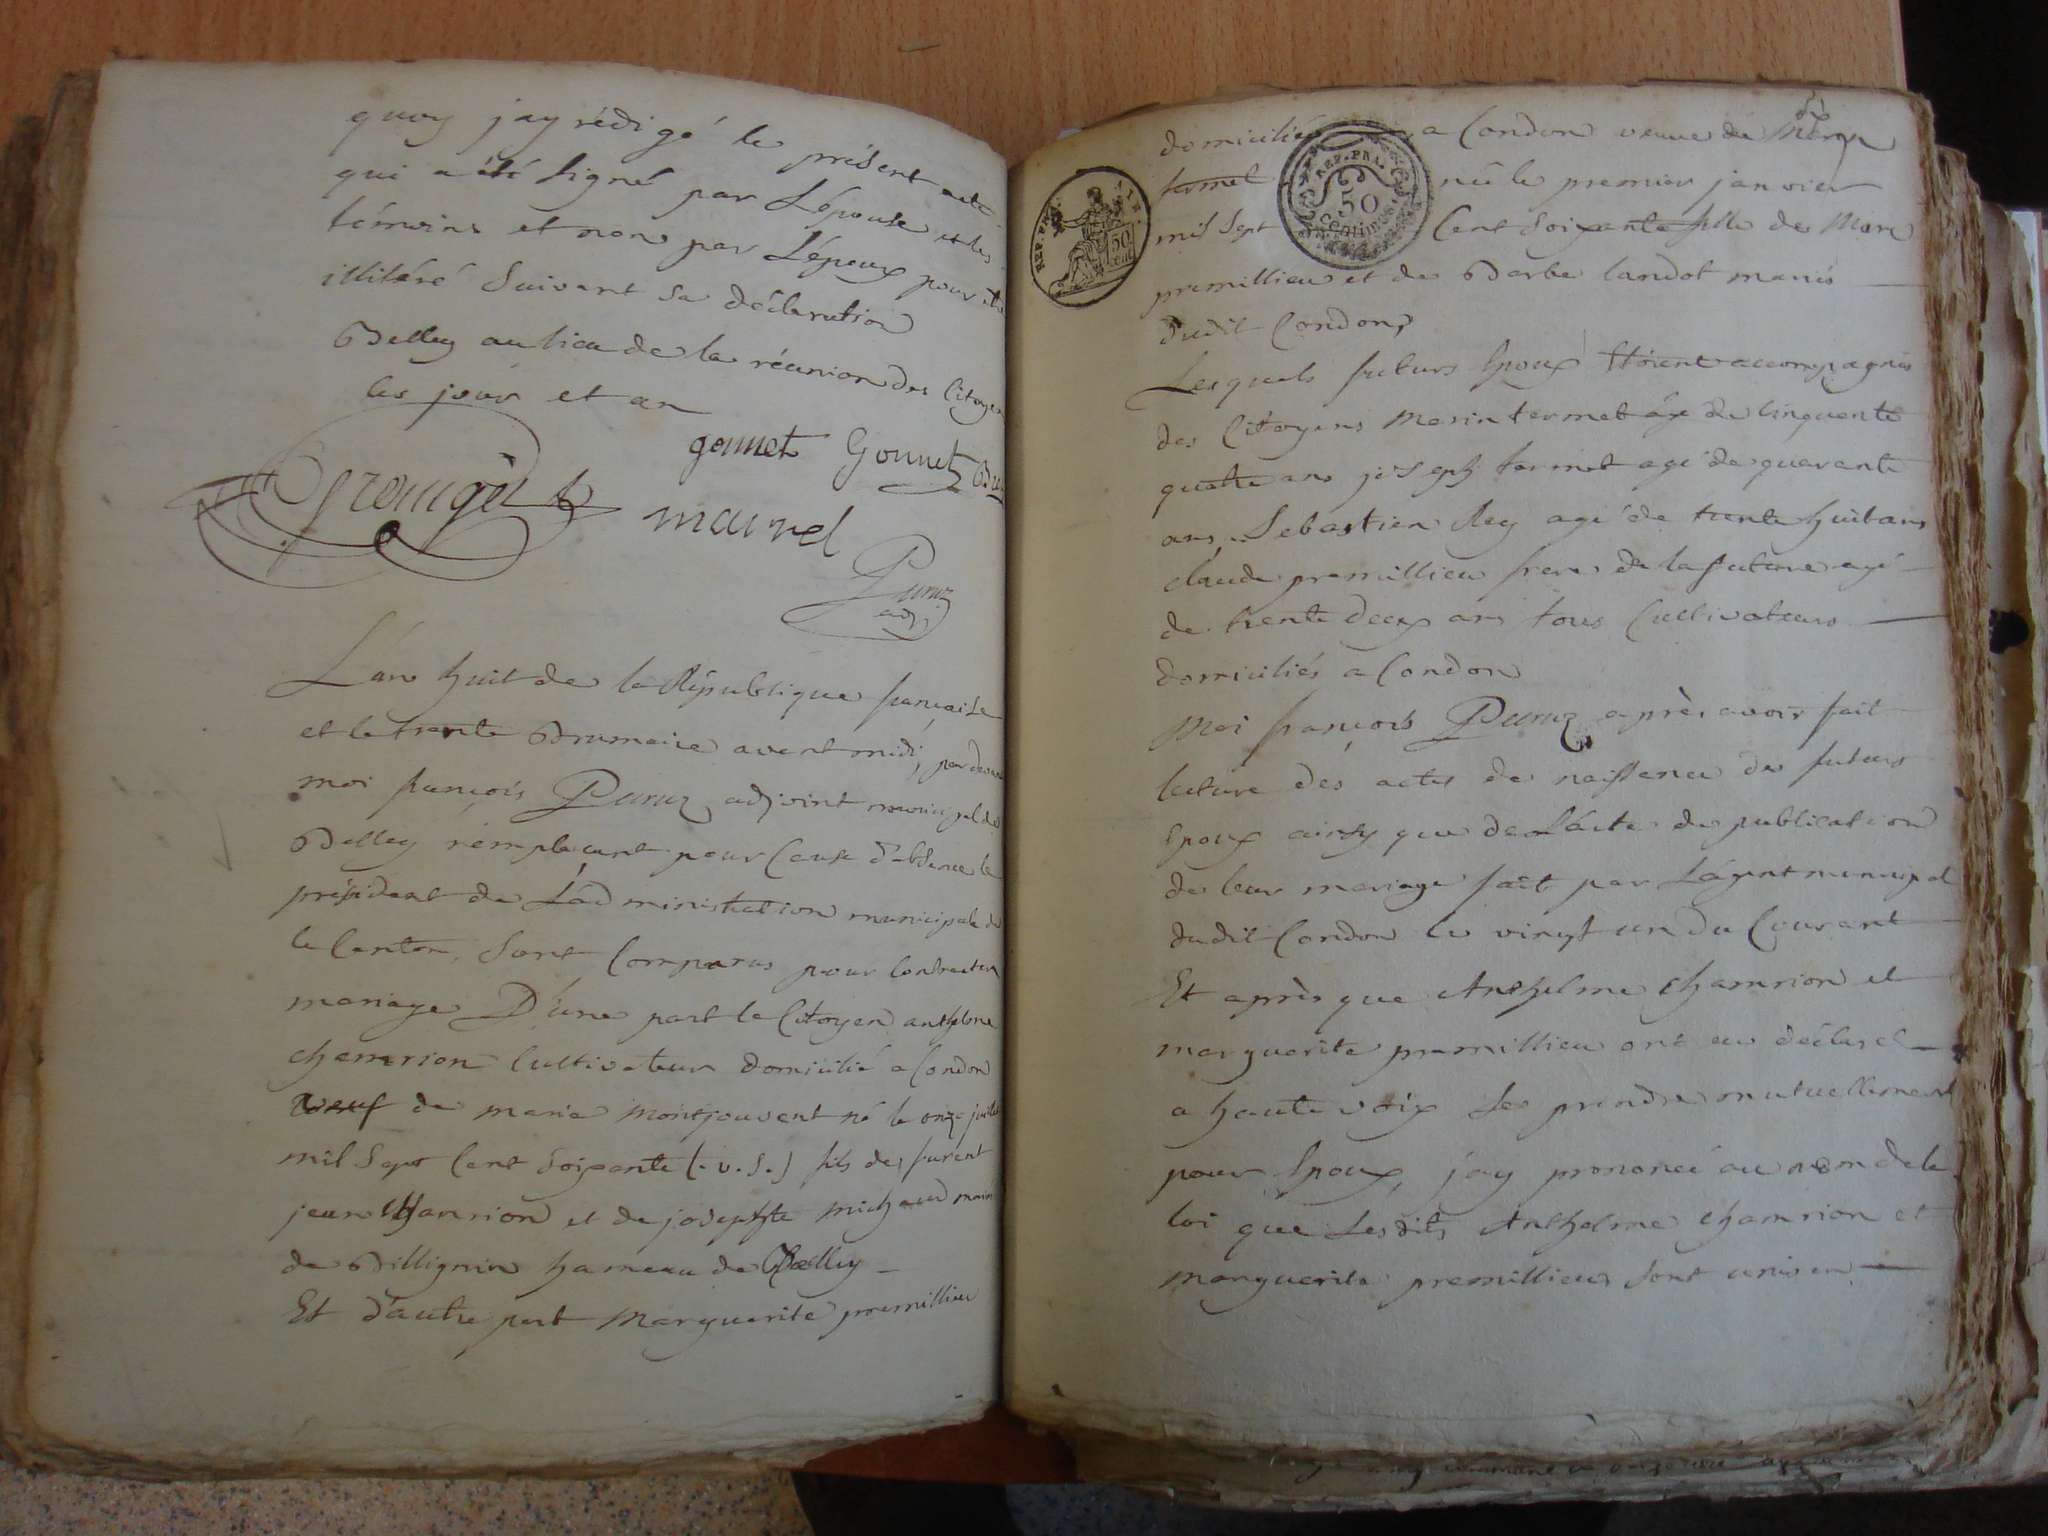 quoy jay rédigé le présent acte
qui a été signé par L'épouse et les
témoins et non par L'époux pour être
illitéré suivant sa déclaration
Belley au lieu de la réunion des Citoyens
les jour et an
gonnet Gonnet
marvel
Peruz
adj
L'an huit de la République française
et le trente Brumaire avant midi, par devant
moi françois Peruz adjoint municipal de
Belley remplacant pour Cause d'absence le
président de L'administration municipale de
le Canton, sont Comparus pour Contracter
mariage D'une part le Citoyen anthelme
chamrion Cultivateur domicilié a Condon
veuf de marie montjouvent né le onze juillet
mil Sept Cent Soixante (. v. s.) fils de furent
jean Chamrion et de josephte michaud mariés
de Billignin hameau de Belley
Et d'autre part Marguerite premillieu
domiciliée a Condon veuve de Marin
termet née le premier janvier
mil Sept Cent Soixante fille de Marc
premillieu et de Barbe landot mariés
dudit Condon,
Lesquels futurs Epoux Etoient accompagnés
des Citoyens marin termet âgé de Cinquante
quatre ans joseph termet agé de quarante
ans, Sebastien Rey agé de trente huit ans
claude premillieu frere de la future agé
de trente deux ans tous Cultivateurs
domiciliés a Condon
Moi françois Peruz après avoir fait
lecture des actes de naissance des futurs
Epoux ainsy que de L'acte de publication
de leur mariage fait par L'agent municipal
dudit Condon le vingt un du Courant
Et après que Anthelme chamrion et
marguerite premillieu ont eu déclaré
a haute voix Se prendre mutuellement
pour Epoux, j'ay prononcé au nom de la
loi que Lesdits Anthelme chamrion et
marguerite premillieu sont unis en
REP. FRA.
50
CENTIMES
REP. FRA.
50
cent